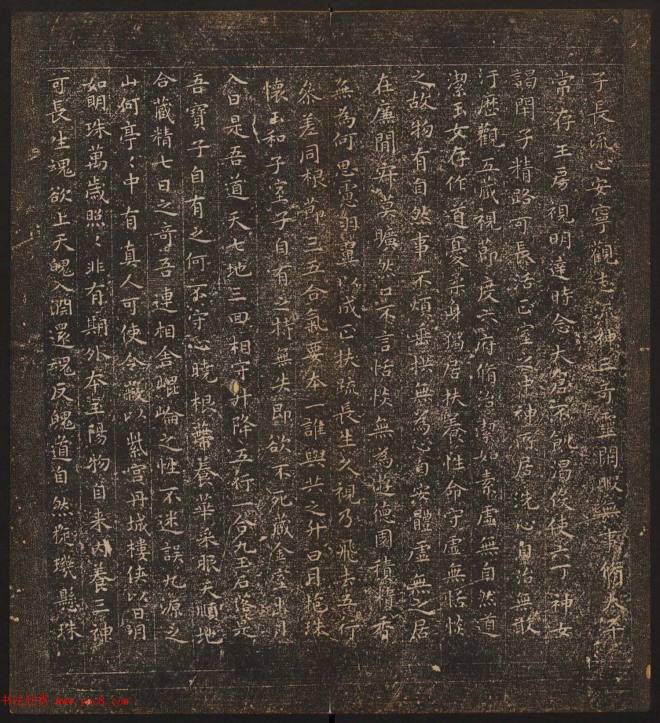 子長流心安寧觀志流神三奇靈閒暇無事脩太平
常存玉房視明達時念大倉不飢渴役使六丁神女
謁閉子精路可長活正室之中神所居洗心自治無敢
汙歷觀五藏視節度六府脩治潔如素虛無自然道
潔玉女存作道憂柔身獨居扶養性命守虛無恬惔
之故物有自然事不煩垂拱無為心自安體虛無之居
在廉間寂莫曠然口不言恬惔無為遊德園積精香
無為何思慮羽翼以成正扶疏長生久視乃飛去五行
參差同根節三五合氣要本一誰與共之升日月抱珠
懷玉和子室子自有之持無失即欲不死藏金室出月
入日是吾道天七地三回相守升降五行一合九玉石落落是
吾寶子自有之何不守心曉根蔕養華采服天順地
合藏精七日之奇吾連相合崐崘之性不迷誤九源之
山何亭〻中有真人可使令蔽以紫宮丹城樓俠以日月
如明珠萬歲照〻非有期外本三陽物自來內養三神
可長生魂欲上天魄入淵還魂反魄道自然琁璣懸珠